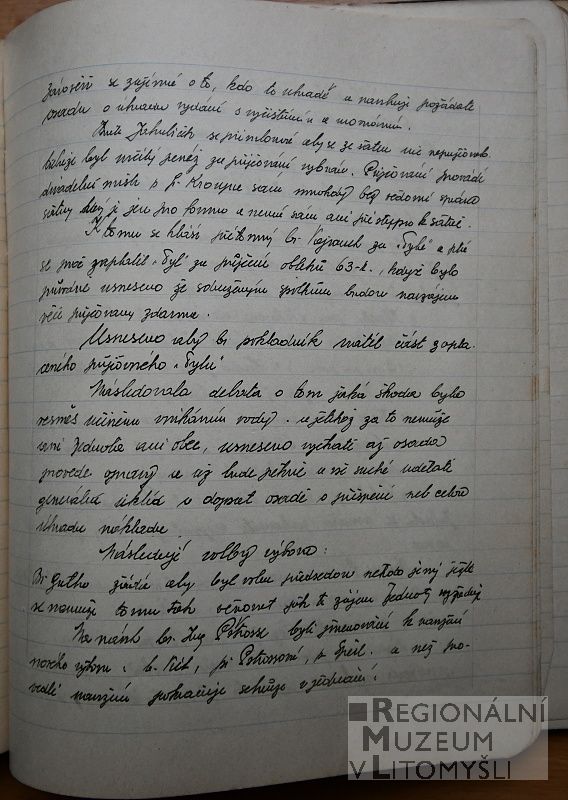 Zároveň se zajímá o to, kdo to uhradí a navrhuje požádati
osadu o úhradu vydání s vyčištěním a
Br. se přimlouvá aby se ze šaten nic nepůjčovalo
byl určitý peníz za půjčování vybírán. Půjčování provádí
divadelní mistr s p. Kroupou sám mnohdy bez vědomí správce
šatny který je jen pro formu a nemá sám ani přístupu k šatně.
K tomu se hlásí přítomný br. za "Tyl" a ptá
se proč zaplatil "Tyl" za půjčení obleků 63 k., když bylo
původně usneseno že sdruženým spolkům budou navzájem
věci půjčovány zdarma.
Usneseno aby br. pokladník vrátil část zapla-
ceného půjčovného "Tylu"
Následovala debata o tom jaká škoda byla
vesměs učiněna vnikáním vody. a jelikož za to nemůže
ani Jednota ani obec, usneseno vyčkati až osada
provede opravy a už bude pěkně a vše suché udělati
generální úklid a dopsat osadě o přispění neb celou
úhradu nákladu.
Následují volby výboru:
Br. Gutha žádá aby byl zvolen předsedou někdo jiný ježto
se nemůže tomu tak věnovat jak to zájem Jednoty vyžaduje
Na návrh br. Petrose byli jmenováni k navržení
nového výboru: b. , pí Petrosová, p. . a než pro-
vedli navržení pokračuje schůze v jednání:
REGIONÁLNÍ
MUZEUM
V LITOMYŠLI